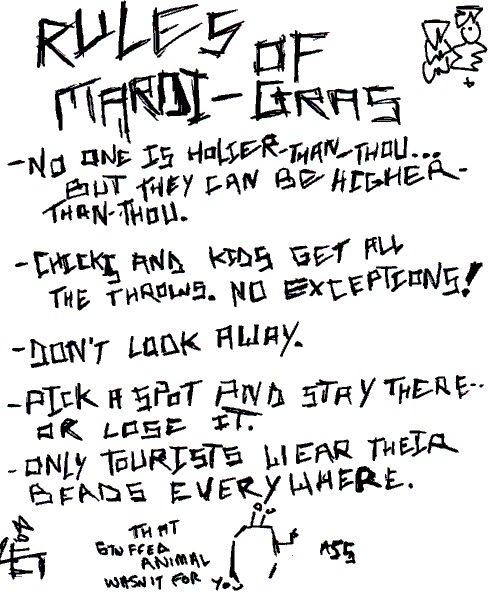 RULES OF
MARDI-GRAS
-NO ONE IS HOLIER-THAN-THOU...
BUT THEY CAN BE HIGHER-
THAN-THOU.
-CHICKS AND KIDS GET ALL
THE THROWS. NO EXCEPTIONS!
-DON'T LOOK AWAY.
-PICK A SPOT AND STAY THERE--
OR LOSE IT.
-ONLY TOURISTS WEAR THEIR
BEADS EVERYWHERE.
THAT
STUFFED
ANIMAL
WASN'T FOR YOU
ASS